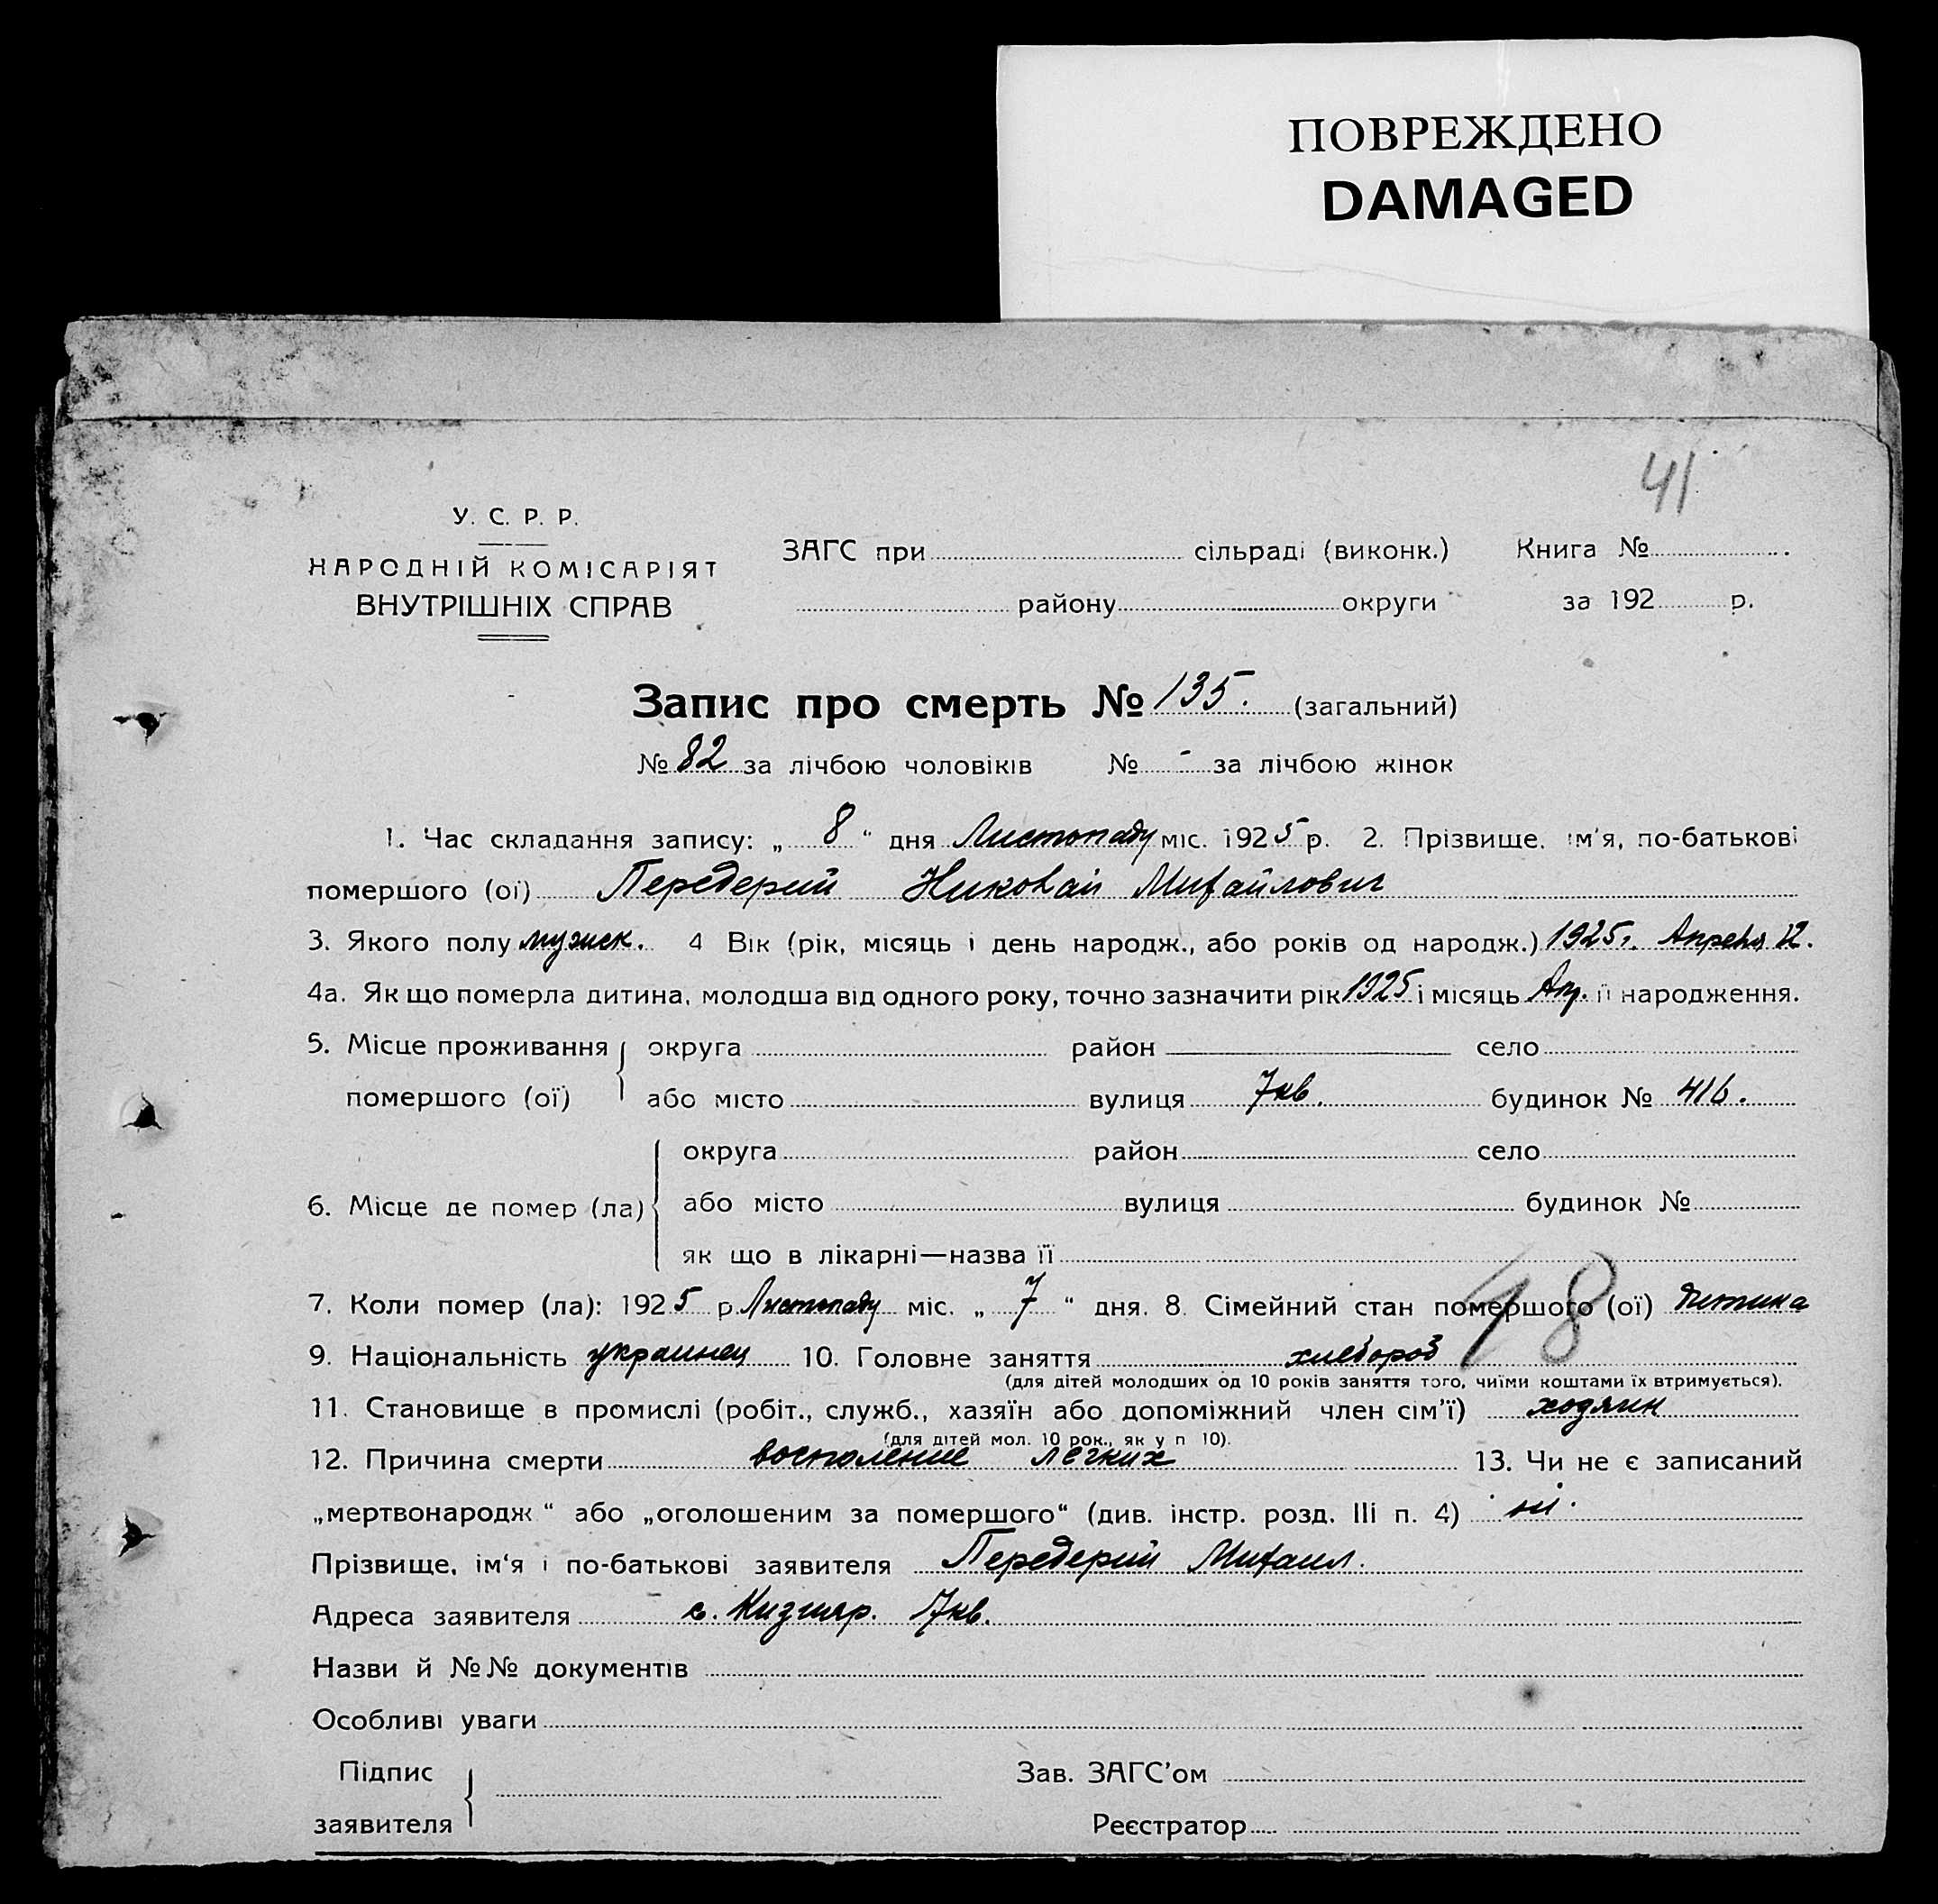 ПОВРЕЖДЕНО
DAMAGED
41
У. С. Р. Р.
НАРОДНІЙ КОМІСАРІЯТ
ВНУТРІШНІХ СПРАВ
ЗАГС при сільраді (виконк.) Книга №
району округи за 192 р.
Запис про смерть № 135. (загальний)
№ 82 за лічбою чоловіків № - за лічбою жінок
1. Час складання запису: „ 8 “ дня Листопаду міс. 1925 р. 2. Прізвище, ім'я, по-батькові
помершого (ої) Передерий Николай Михайлович
3. Якого полу мужск. 4 Вік (рік, місяць і день народж., або років од народж.) 1925г. Апреля 12.
4а. Як що померла дитина, молодша від одного року, точно зазначити рік 1925 і місяць Апр. її народження.
5. Місце проживання округа район село
помершого (ої) або місто вулиця 7кв. будинок № 416.
округа район село
6. Місце де помер (ла) або місто вулиця будинок №
як що в лікарні—назва її
98
7. Коли помер (ла): 1925 р. Листопаду міс. „ 7 “ дня. 8. Сімейний стан помершого (ої) дитина
9. Національність украинец 10. Головне заняття хлебороб
(для дітей молодших од 10 років заняття того, чиїми коштами їх втримується).
11. Становище в промислі (робіт., служб., хазяїн або допоміжний член сім'ї) ходяин
(для дітей мол. 10 рок., як у п 10).
12. Причина смерти восполение легких 13. Чи не є записаний
„мертвонародж “ або „оголошеним за помершого“ (див. інстр. розд. III п. 4) ні.
Прізвище, ім'я і по-батькові заявителя Передерий Михаил.
Адреса заявителя с. 7кв.
Назви й №№ документів
Особливі уваги
Підпис Зав. ЗАГС'ом
заявителя Реєстратор